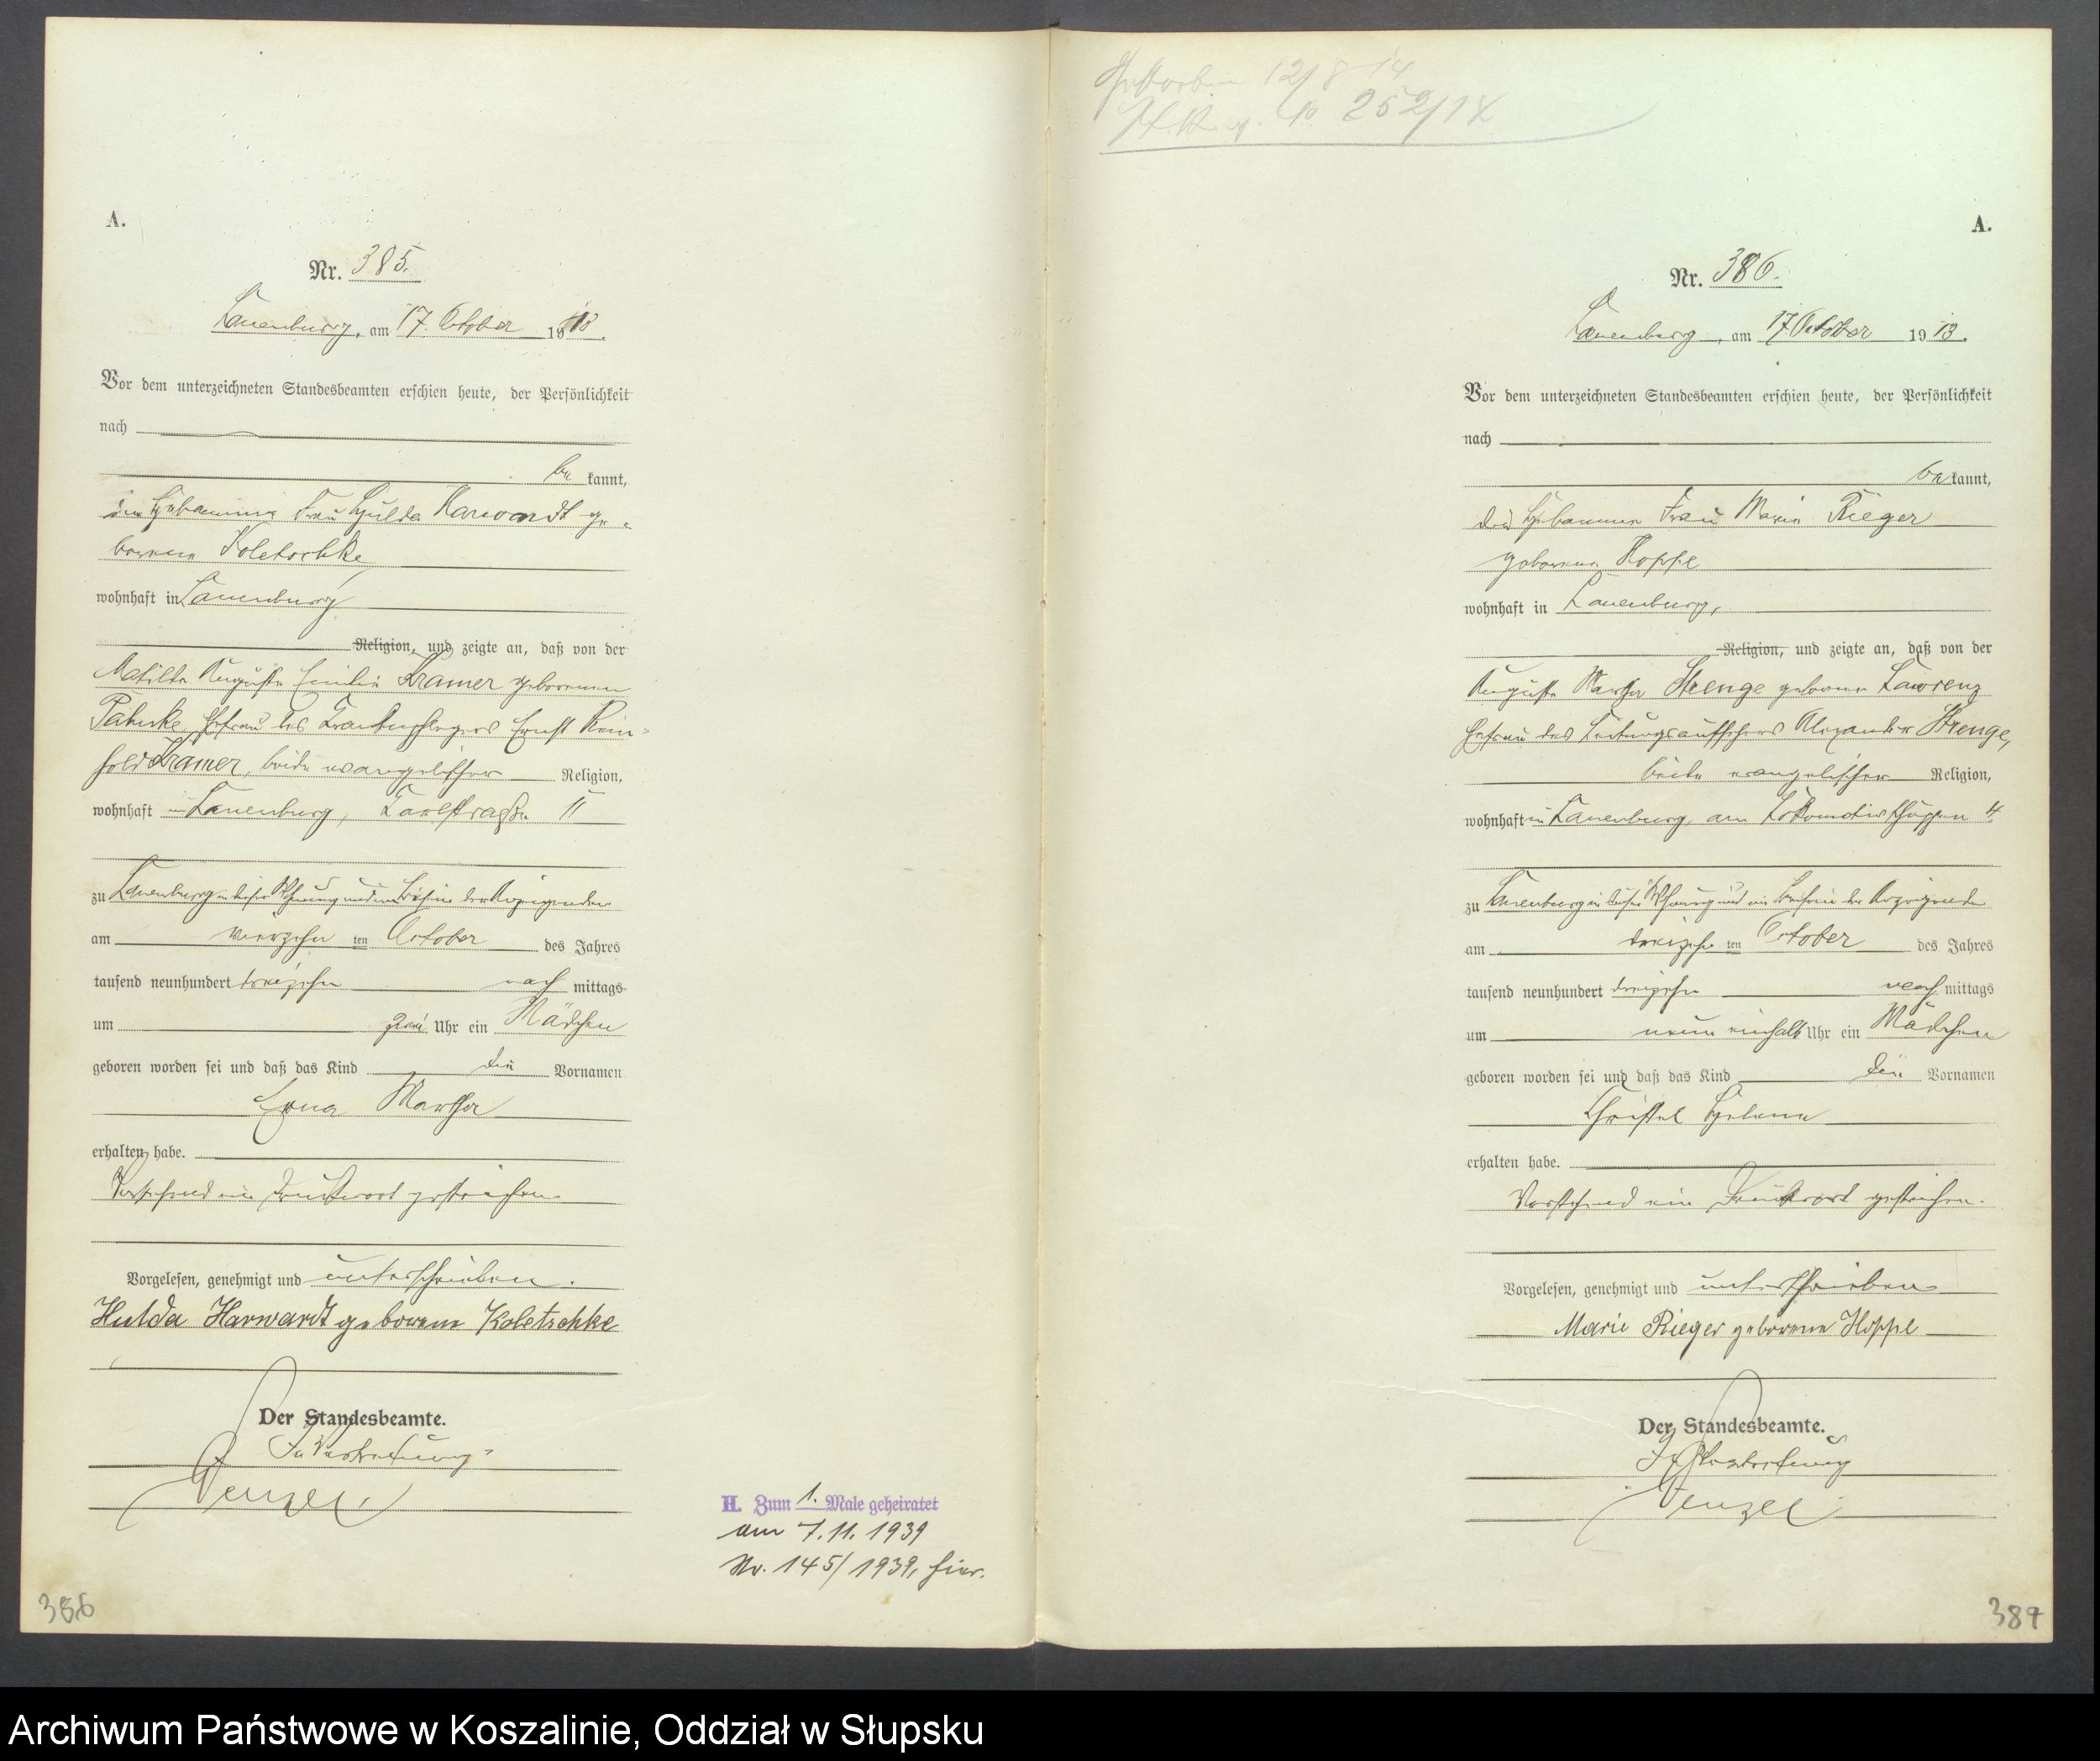 A.
Nr. 385.
Lauenburg, am 17. October 1913.
Vor dem unterzeichneten Standesbeamten erschien heute, der Persönlichkeit
nach
be kannt,
die Hebamme Frau Hulda Harwardt ge-
borene Koletschke
wohnhaft in Lauenburg
Religion, und zeigte an, daß von der
Auguste Emilie Kramer geborenen
Pahnke, Ehefrau des Krankenpflegers Ernst Rein-
hold Kramer, beide evangelischer Religion,
wohnhaft in Lauenburg, 11
zu Lauenburg in dieser Wohnung und im Beisein der Anzeigenden
am vierzehn ten October des Jahres
tausend neunhundert dreizehn nach mittags
um zwei Uhr ein Mädchen
geboren worden sei und daß das Kind die Vornamen
Erna Martha
erhalten habe.
Vorstehend ein Druckwort gestrichen.
Vorgelesen, genehmigt und unterschrieben.
Hulda Harwardt geborene Koletschke
Der Standesbeamte.
In Vertretung
Wenzel
H. Zum 1. Male geheiratet
am 7.11.1939
Nr. 145/1939, hier.
386
Gestorben 12/8 14
St. Reg. No 252/14
A.
Nr. 386.
Lauenburg, am 17 October 1913.
Vor dem unterzeichneten Standesbeamten erschien heute, der Persönlichkeit
nach
be kannt,
die Hebamme Frau Marie Rieger
geborene Hoppe
wohnhaft in Lauenburg,
Religion, und zeigte an, daß von der
Auguste Martha Strenge geborene Lawrenz
Ehefrau des Leitungsaufsehers Alexander Strenge,
beide evangelischer Religion,
wohnhaft in Lauenburg, am Lokomotivschuppen 4.
zu Lauenburg in dieser Wohnung und im Beisein der Anzeigende
am dreizehn ten October des Jahres
tausend neunhundert dreizehn nach mittags
um neun einhalb Uhr ein Mädchen
geboren worden sei und daß das Kind die Vornamen
Christel Helene
erhalten habe.
Vorstehend ein Druckwort gestrichen.
Vorgelesen, genehmigt und unterschrieben
Marie Rieger geborene Hoppe
Der Standesbeamte.
In Vertretung
Wenzel
387
Archiwum Państwowe w Koszalinie, Oddział w Słupsku